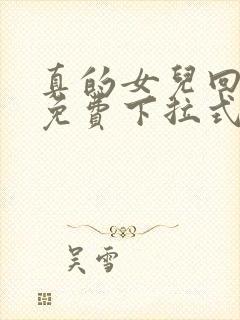 真的女兒回
免費下拉式
吳雪